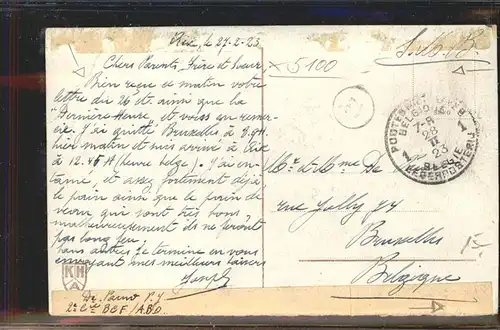 Aix, le 27-2-23
Chers Parents, Frère et Soeur
Bien reçu ce matin votre
lettre du 26 ct. ainsi que la
"Dernière Heure", et vous en remer-
cie. J'ai quitté Bruxelles à
hier matin et suis arrivé à Aix
à 12.45 A (heure belge). J'ai en-
tamé, et assez fortement déjà
le pain ainsi que le pain de
veau, qui sont très bons,
malheureusement ils ne feront
pas long feu.
Sans autres, je termine en vous
envoyant mes meilleurs baisers
Joseph
S.M. B.
5100
POSTES MILITAIRES
BELGIQUE
7-8
28
II
23
1 1
BELGIE
LEGERPOSTERIJ
Mr et Mme De
rue Jolly 74
Bruxelles
Belgique
KH
A
2e Cie BGF/ABD